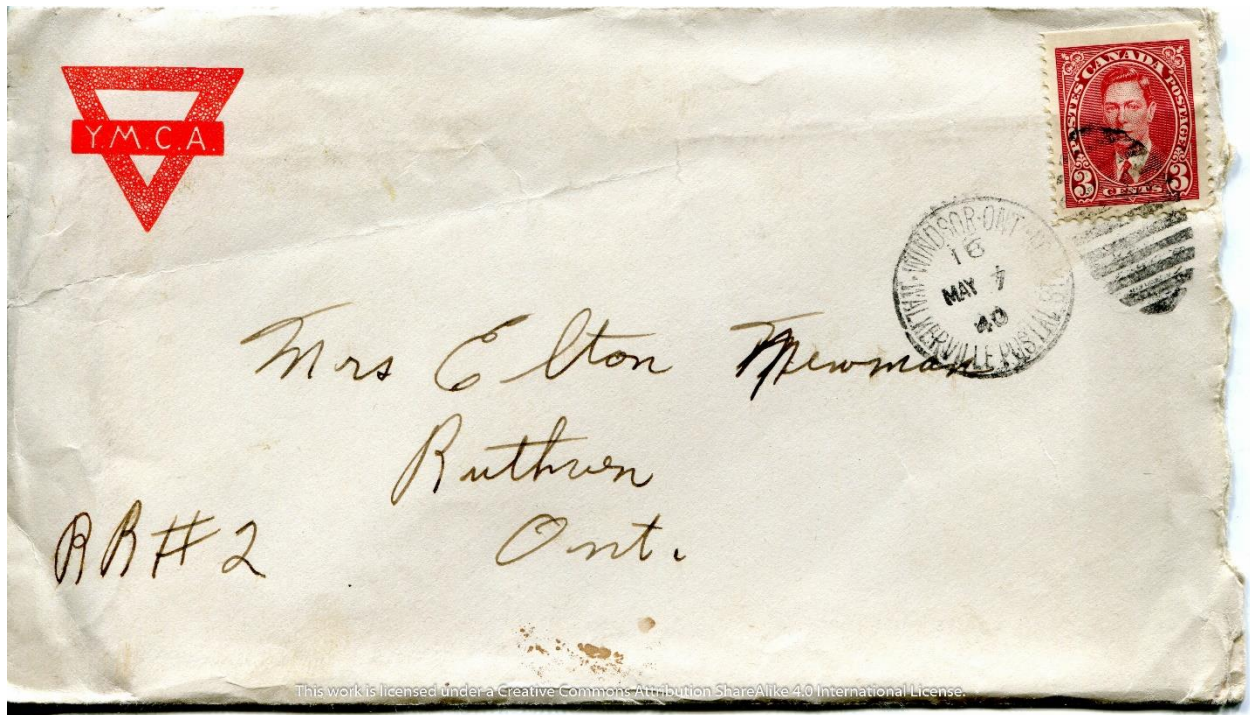 Y.M.C.A.
POSTES CANADA POSTAGE
3 CENTS 3
WINDSOR·ONT
18
MAY 7
40
WALKERVILLE POSTAL
Mrs Elton Newman
Ruthven
RR#2 Ont.
This work is licensed under a Creative Commons Attribution ShareAlike 4.0 International License.